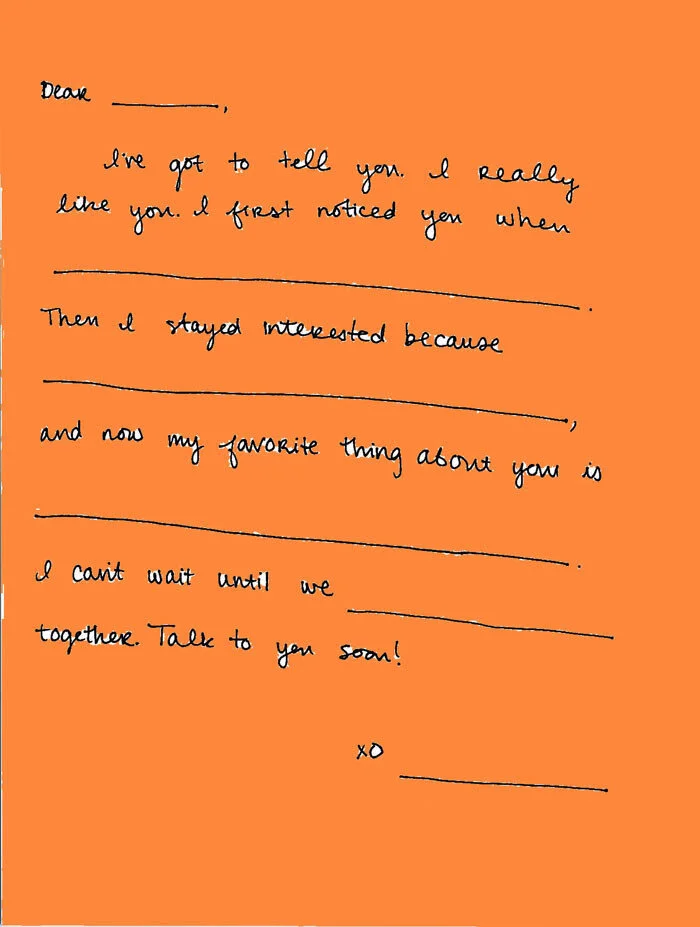 Dear ______,
I've got to tell you. I really
like you. I first noticed you when
______.
Then I stayed interested because
______,
and now my favorite thing about you is
______.
I can't wait until we ______
together. Talk to you soon!
xo ______